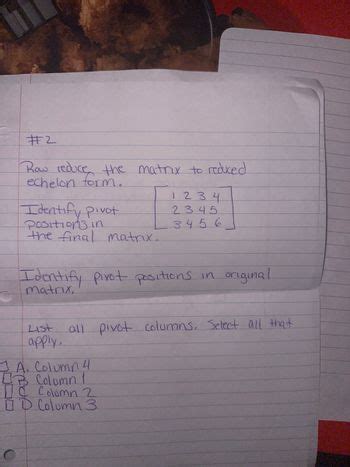 #2
Row reduce the matrix to reduced
echelon form.
1 2 3 4
Identify pivot 2 3 4 5
positions in 3 4 5 6
the final matrix.
Identify pivot positions in original
matrix.
List all pivot columns. Select all that
apply.
A. Column 4
B Column 1
C Column 2
D Column 3